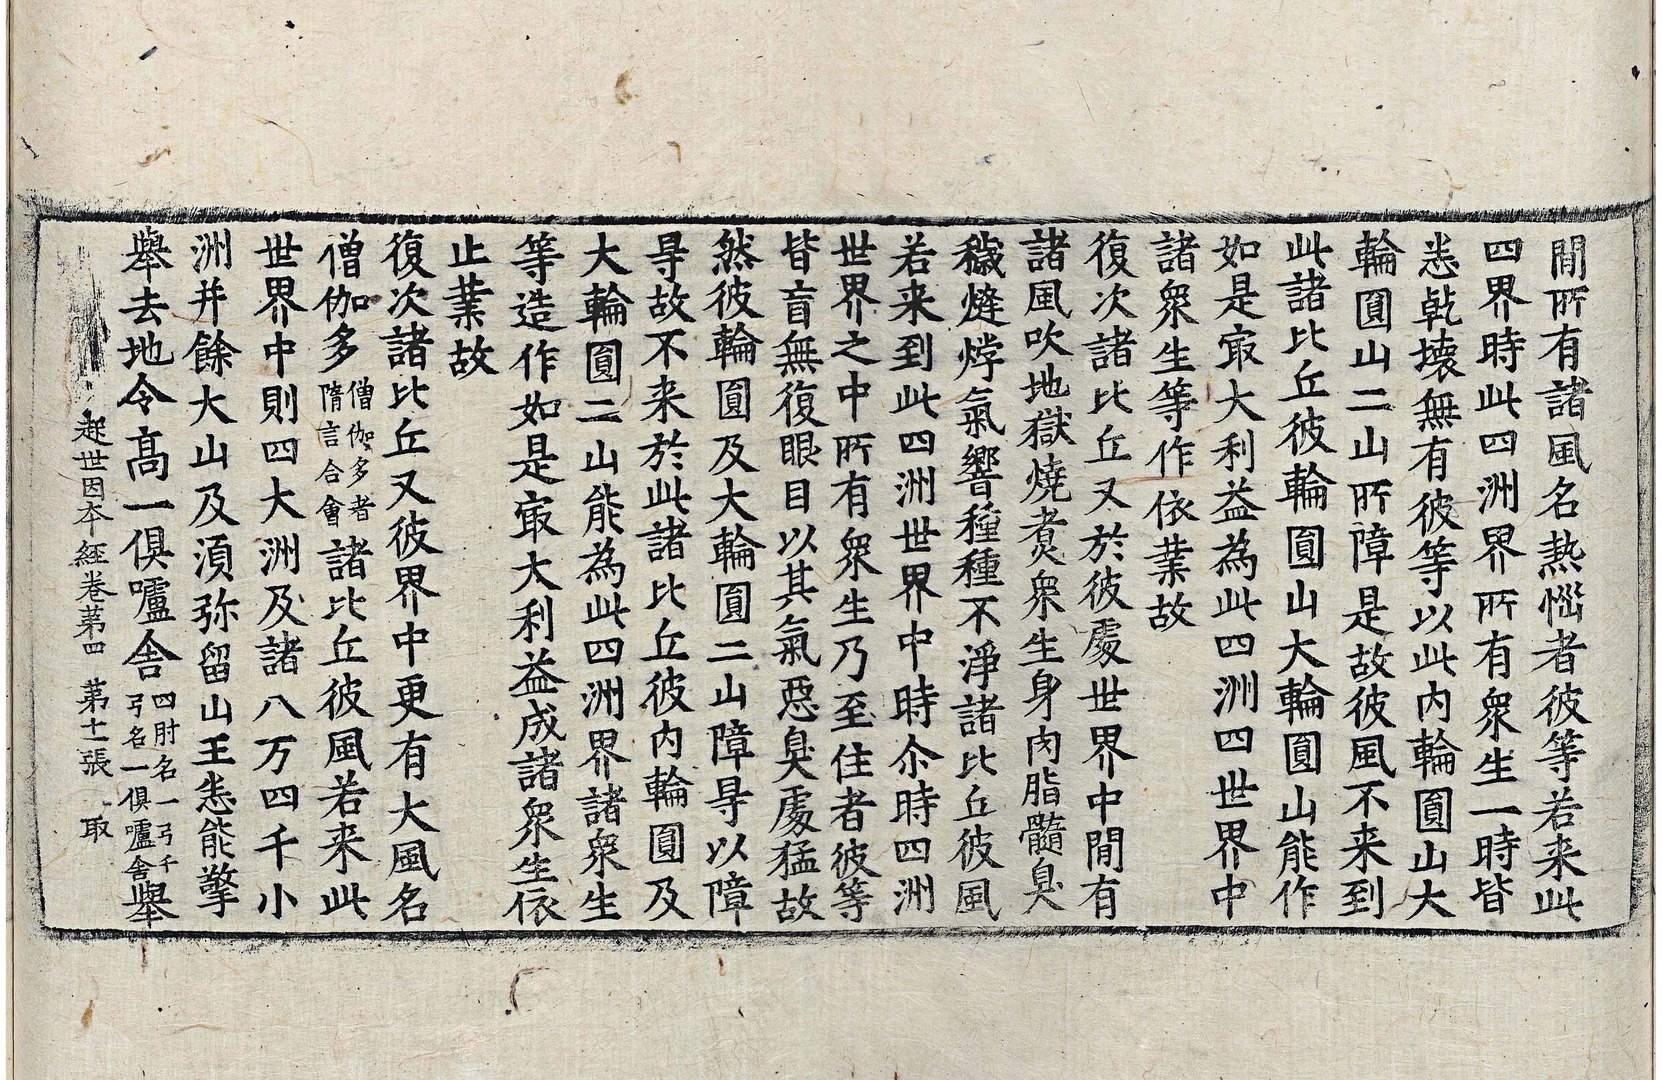 間所有諸風名熱惱者彼等若来此
四界時此四洲界所有衆生一時皆
悉乾壞無有彼等以此內輪圓山大
輪圓山二山所障是故彼風不来到
此諸比丘彼輪圓山大輪圓山能作
如是㝡大利益為此四洲四世界中
諸衆生等作依業故
復次諸比丘又於彼處世界中間有
諸風吹地獄燒煮衆生身肉脂髓臭
穢㷰㶿氣響種種不淨諸比丘彼風
若来到此四洲世界中時尒時四洲
世界之中所有衆生乃至住者彼等
皆盲無復眼目以其氣惡臭處猛故
然彼輪圓及大輪圓二山障㝵以障
㝵故不来於此諸比丘彼內輪圓及
大輪圓二山能為此四洲界諸衆生
等造作如是㝡大利益成諸衆生依
止業故
復次諸比丘又彼界中更有大風名
僧伽多僧伽多者隋言合會諸比丘彼風若来此
世界中則四大洲及諸八万四千小
洲并餘大山及湏弥留山王悉能擎
舉去地令高一俱嚧舍四肘名一弓千弓名一俱嚧舍舉
起世因本經卷苐四　第十一張　取